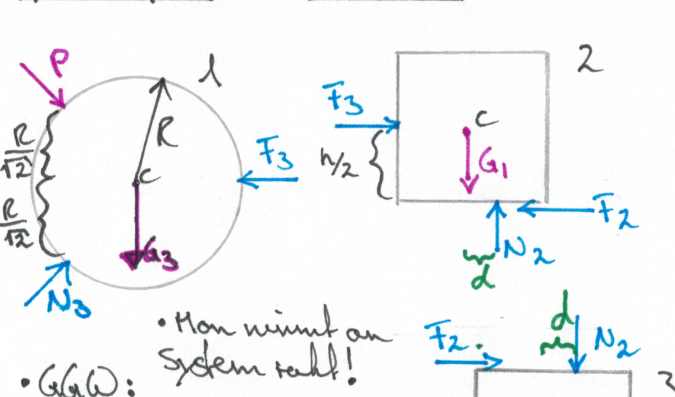 P
1
R
C
G3
F3
R/√2
R/√2
N3
2
F3
C
h/2
G1
F2
N2
d
• Man nimmt an
System ruht!
• GGW:
F2
d
N2
3